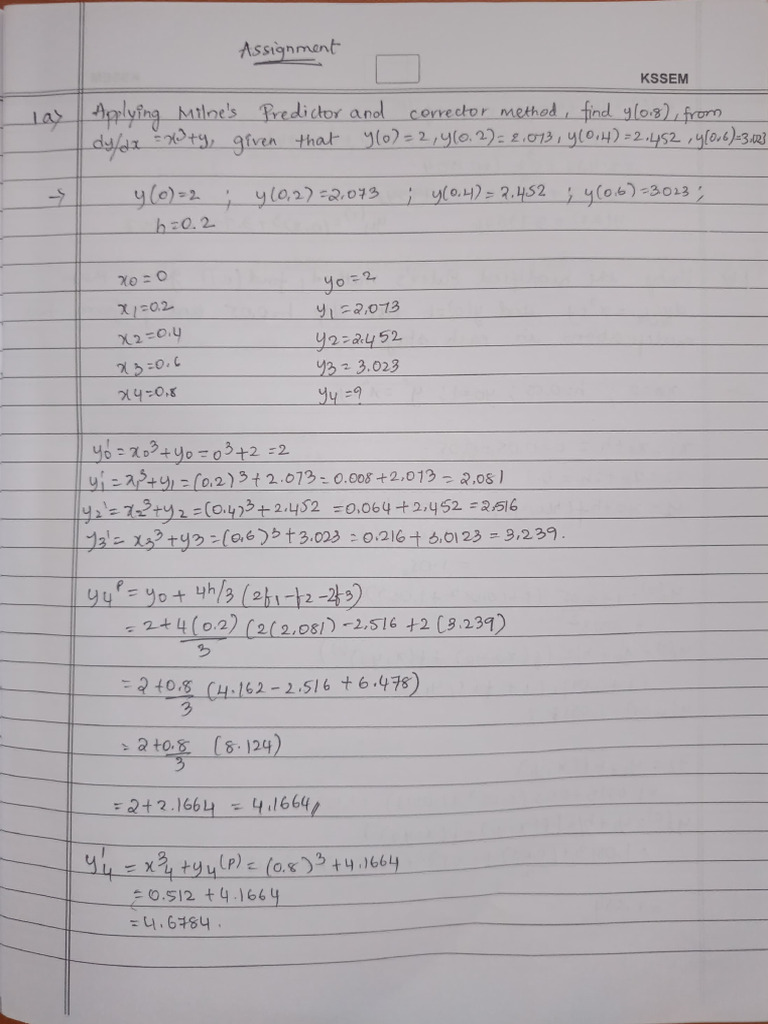 Assignment
KSSEM
1a> Applying Milne's Predictor and corrector method, find y(0.8), from
dy/dx = x³+y, given that y(0)=2, y(0.2)=2.073, y(0.4)=2.452, y(0.6)=3.023
→ y(0)=2 ; y(0.2)=2.073 ; y(0.4)=2.452 ; y(0.6)=3.023 ;
h=0.2
x0=0 y0=2
x1=0.2 y1=2.073
x2=0.4 y2=2.452
x3=0.6 y3=3.023
x4=0.8 y4=?
y0' = x0³+y0 = 0³+2 =2
y1' = x1³+y1 = (0.2)³+2.073 = 0.008+2.073 = 2.081
y2' = x2³+y2 = (0.4)³+2.452 = 0.064+2.452 = 2.516
y3' = x3³+y3 = (0.6)³+3.023 = 0.216+3.0123 = 3.239.
y4ᵖ = y0 + 4h/3 (2f1-f2-2f3)
= 2+4(0.2)/3 (2(2.081)-2.516+2(3.239)
= 2+0.8/3 (4.162-2.516+6.478)
= 2+0.8/3 (8.124)
= 2+2.1664 = 4.1664//
y4' = x³4+y4(P) = (0.8)³+4.1664
= 0.512+4.1664
= 4.6784.